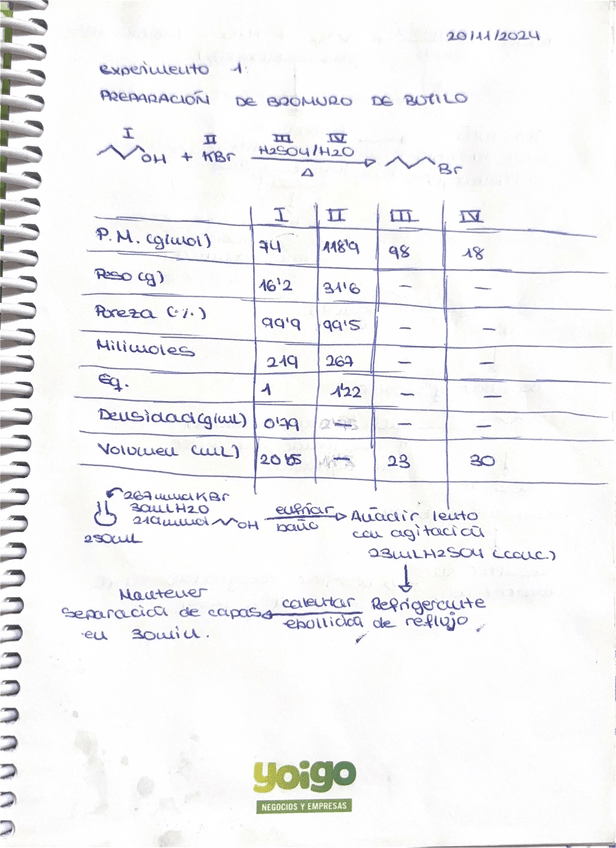 20/11/2024
experimento 1:
PREPARACIÓN DE BROMURO DE BUTILO
I II III IV
OH + KBr H2SO4/H2O Br
Δ
I II III IV
P.M. (g/mol) 74 118'9 98 18
Peso (g) 16'2 31'6 — —
Pureza (%) 99'9 99'5 — —
Milimoles 219 267 — —
Eq. 1 1'22 — —
Densidad (g/mL) 0'79 — — —
Volumen (mL) — 23 30
267mmol KBr
30mL H2O
219mmol OH
250mL
enfriar
baño
Añadir lento
con agitación
23mL H2SO4 (conc.)
Refrigerante
de reflujo
calentar
ebollición
Mantener
separación de capas
en 30min.
yoigo
NEGOCIOS Y EMPRESAS